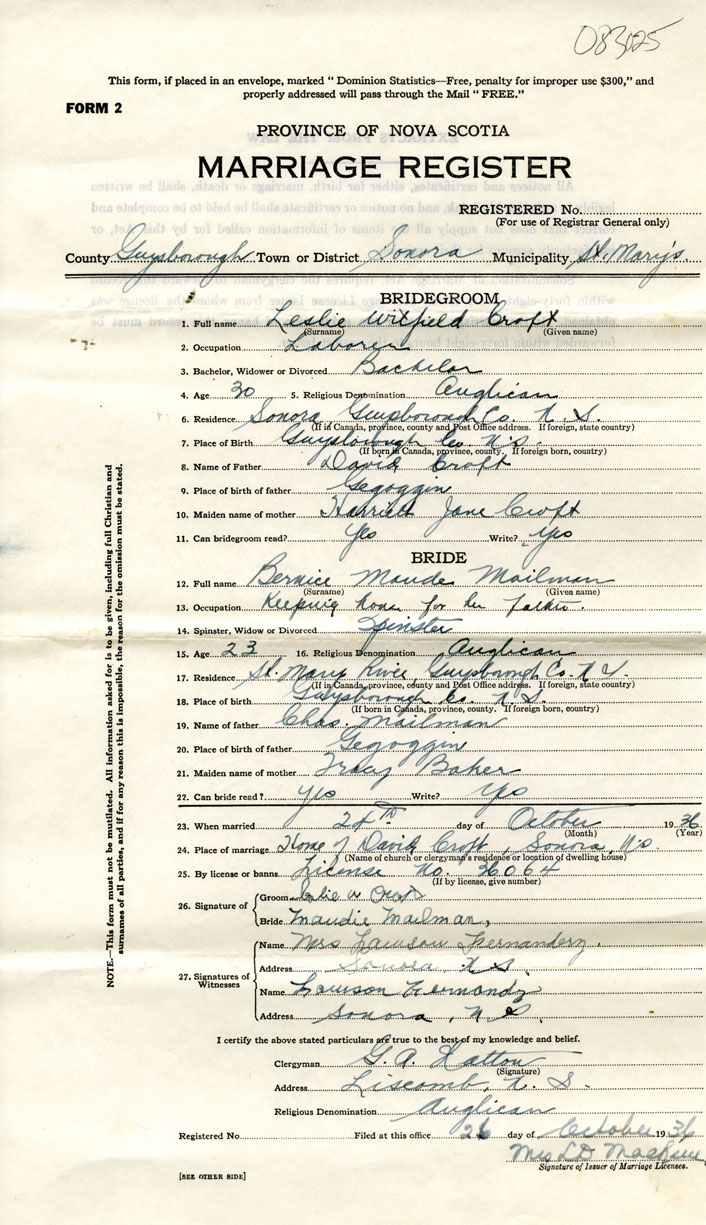 083025
This form, if placed in an envelope, marked "Dominion Statistics—Free, penalty for improper use $300," and
properly addressed will pass through the Mail "FREE."
FORM 2
PROVINCE OF NOVA SCOTIA
MARRIAGE REGISTER
REGISTERED No.
(For use of Registrar General only)
County Guysborough Town or District Sonora Municipality St. Mary's
BRIDEGROOM
1. Full name Leslie Witfield Croft
(Surname) (Given name)
2. Occupation Laborer
3. Bachelor, Widower or Divorced Bachelor
4. Age 30 5. Religious Denomination Anglican
6. Residence Sonora Guysborough Co. N. S.
(If in Canada, province, county and Post Office address. If foreign, state country)
7. Place of Birth Guysborough Co. N.S.
(If born in Canada, province, county. If foreign born, country)
8. Name of Father David Croft
9. Place of birth of father Gegoggin
10. Maiden name of mother Harriett Jane Croft
11. Can bridegroom read? Yes Write? Yes
BRIDE
12. Full name Bernice Maude Mailman
(Surname) (Given name)
13. Occupation Keeping house for her father.
14. Spinster, Widow or Divorced Spinster
15. Age 23 16. Religious Denomination Anglican
17. Residence St. Mary River, Guysborough Co. N.S.
(If in Canada, province, county and Post Office address. If foreign, state country)
18. Place of birth Guysborough Co. N.S.
(If born in Canada, province, county. If foreign born, country)
19. Name of father Chas. Mailman
20. Place of birth of father Gegoggin
21. Maiden name of mother Baker
22. Can bride read? yes Write? yes
23. When married 24th day of October 1936
(Month) (Year)
24. Place of marriage Home of David Croft, Sonora, N.S.
(Name of church or clergyman's residence or location of dwelling house)
25. By license or banns License No. 36064
(If by license, give number)
26. Signature of
Groom Leslie W Croft
Bride Maudie Mailman,
27. Signatures of Witnesses
Name Mrs Lawson Fernandez.
Address Sonora N.S.
Name Lawson Fernandez
Address Sonora, N.S.
I certify the above stated particulars are true to the best of my knowledge and belief.
Clergyman G. A. Hatton
(Signature)
Address Liscomb, N. S.
Religious Denomination Anglican
Registered No. Filed at this office 26 day of October 1936
Mrs L D
Signature of Issuer of Marriage Licenses.
[SEE OTHER SIDE]
NOTE.—This form must not be mutilated. All information asked for is to be given, including full Christian and
surnames of all parties, and if for any reason this is impossible, the reason for the omission must be stated.